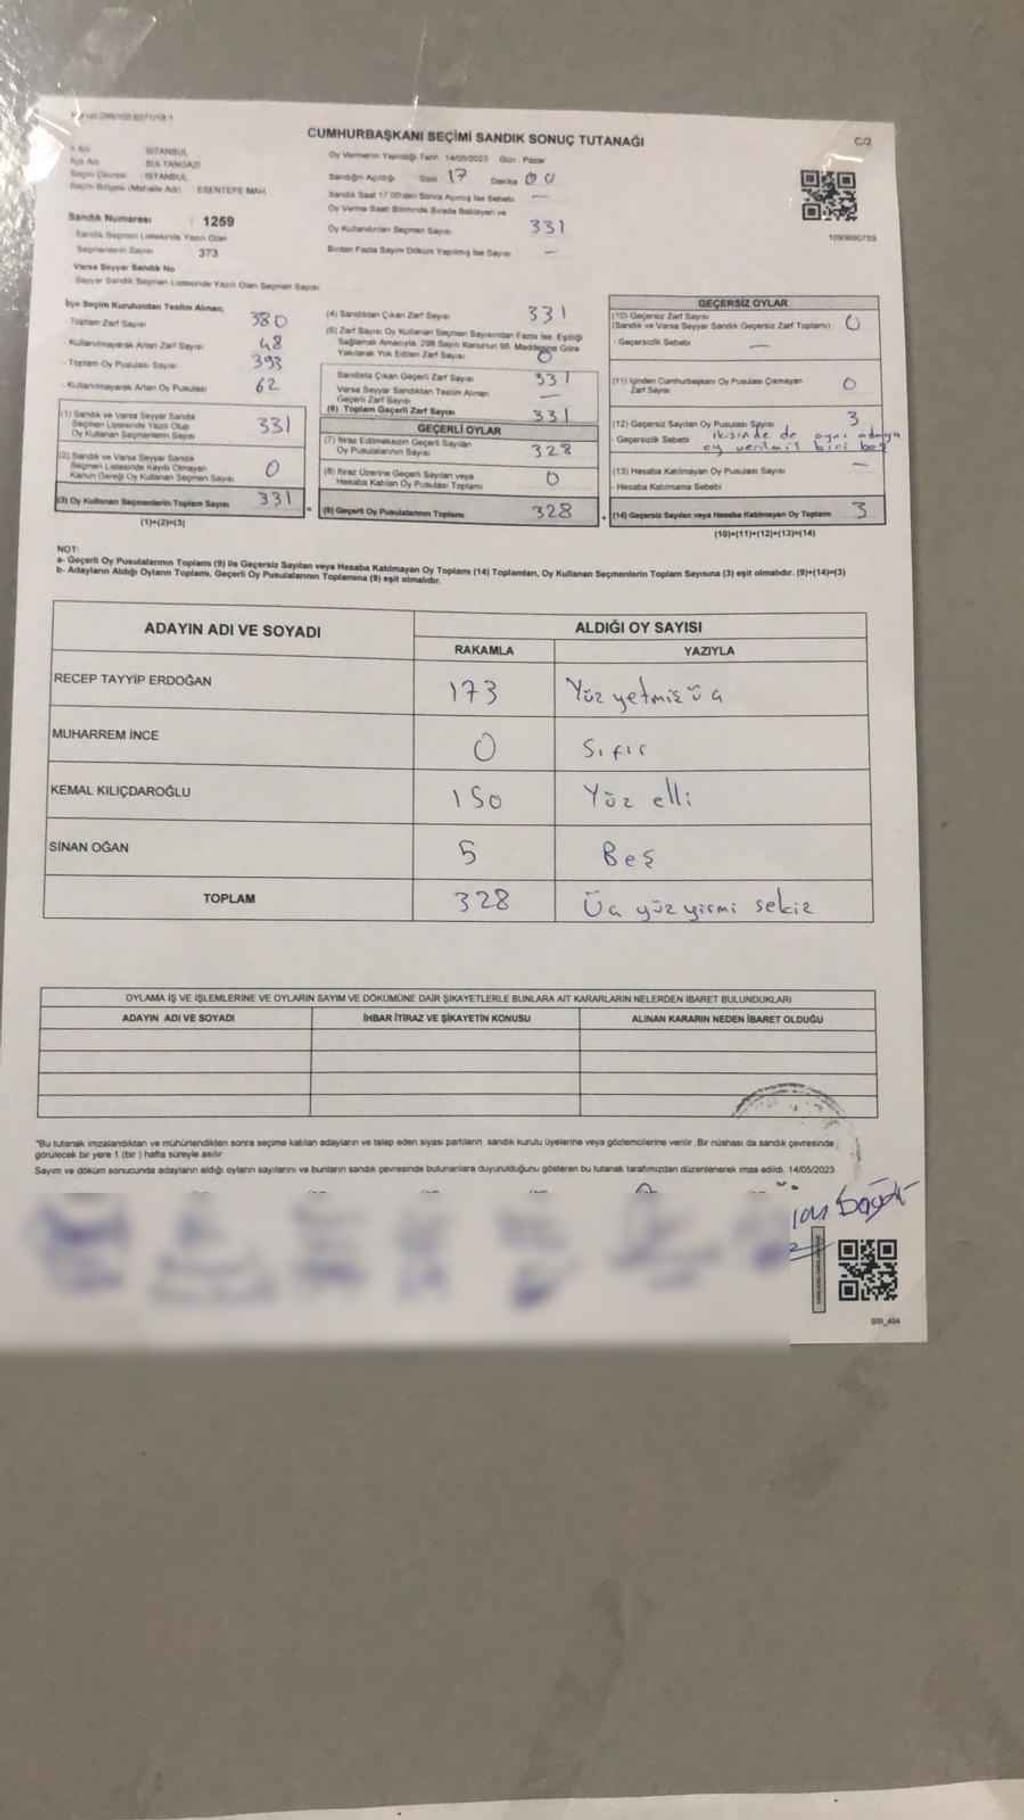 CUMHURBAŞKANI SEÇİMİ SANDIK SONUÇ TUTANAĞI
C/2
İSTANBUL
Oy Vermenin Yapıldığı Tarih 14/05/2023 Gün: Pazar
SULTANGAZİ
Sandığın Açılışı Saat 17 Dakika 00
İSTANBUL
Sandık Saat 17.00'den Sonra Açılmış İse Sebebi —
ESENTEPE MAH.
Sandık Numarası : 1259
Oy Kullandırılan Seçmen Sayısı 331
Sandık Seçmen Listesinde Yazılı Olan
Seçmenlerin Sayısı 373
Birden Fazla Sayım Döküm Yapılmış İse Sayısı —
Varsa Seyyar Sandık No
Seyyar Sandık Seçmen Listesinde Yazılı Olan Seçmen Sayısı
İlçe Seçim Kurulundan Teslim Alınan;
- Toplam Zarf Sayısı 380
- Kullanılmayarak Artan Zarf Sayısı 48
- Toplam Oy Pusulası Sayısı 393
- Kullanılmayarak Artan Oy Pusulası 62
(1) Sandık ve Varsa Seyyar Sandık
Seçmen Listesinde Yazılı Olup
Oy Kullanan Seçmenlerin Sayısı 331
(2) Sandık ve Varsa Seyyar Sandık
Seçmen Listesinde Kayıtlı Olmayan
Kanun Gereği Oy Kullanan Seçmen Sayısı 0
(3) Oy Kullanan Seçmenlerin Toplam Sayısı 331
(1)+(2)=(3)
(4) Sandıktan Çıkan Zarf Sayısı 331
(5) Zarf Sayısı Oy Kullanan Seçmen Sayısından Fazla İse, Eşitliği
Sağlamak Amacıyla, 298 Sayılı Kanunun 98. Maddesine Göre
Yakılarak Yok Edilen Zarf Sayısı 0
Sandıkta Çıkan Geçerli Zarf Sayısı 331
Varsa Seyyar Sandıktan Teslim Alınan
Geçerli Zarf Sayısı —
(6) Toplam Geçerli Zarf Sayısı 331
GEÇERLİ OYLAR
(7) İtiraz Edilmeksizin Geçerli Sayılan
Oy Pusulalarının Sayısı 328
(8) İtiraz Üzerine Geçerli Sayılan veya
Hesaba Katılan Oy Pusulası Toplamı 0
(9) Geçerli Oy Pusulalarının Toplamı 328
GEÇERSİZ OYLAR
(10) Geçersiz Zarf Sayısı
(Sandık ve Varsa Seyyar Sandık Geçersiz Zarf Toplamı) 0
- Geçersizlik Sebebi —
(11) İçinden Cumhurbaşkanı Oy Pusulası Çıkmayan
Zarf Sayısı 0
(12) Geçersiz Sayılan Oy Pusulası Sayısı 3
Geçersizlik Sebebi ikisinde de aynı adaya
oy verilmiş biri boş
(13) Hesaba Katılmayan Oy Pusulası Sayısı —
- Hesaba Katılmama Sebebi
(14) Geçersiz Sayılan veya Hesaba Katılmayan Oy Toplamı 3
(10)+(11)+(12)+(13)=(14)
NOT:
a- Geçerli Oy Pusulalarının Toplamı (9) ile Geçersiz Sayılan veya Hesaba Katılmayan Oy Toplamı (14) Toplamları, Oy Kullanan Seçmenlerin Toplam Sayısına (3) eşit olmalıdır. (9)+(14)=(3)
b- Adayların Aldığı Oyların Toplamı, Geçerli Oy Pusulalarının Toplamına (9) eşit olmalıdır.
ADAYIN ADI VE SOYADI
ALDIĞI OY SAYISI
RAKAMLA YAZIYLA
RECEP TAYYİP ERDOĞAN 173 Yüz yetmiş üç
MUHARREM İNCE 0 Sıfır
KEMAL KILIÇDAROĞLU 150 Yüz elli
SİNAN OĞAN 5 Beş
TOPLAM 328 Üç yüz yirmi sekiz
OYLAMA İŞ VE İŞLEMLERİNE VE OYLARIN SAYIM VE DÖKÜMÜNE DAİR ŞİKAYETLERLE BUNLARA AİT KARARLARIN NELERDEN İBARET BULUNDUKLARI
ADAYIN ADI VE SOYADI İHBAR İTİRAZ VE ŞİKAYETİN KONUSU ALINAN KARARIN NEDEN İBARET OLDUĞU
"Bu tutanak imzalandıktan ve mühürlendikten sonra seçime katılan adayların ve talep eden siyasi partilerin, sandık kurulu üyelerine veya gözlemcilerine verilir. Bir nüshası da sandık çevresinde
görülecek bir yere 1 (bir) hafta süreyle asılır
Sayım ve döküm sonucunda adayların aldığı oyların sayılarını ve bunların sandık çevresinde bulunanlara duyurulduğunu gösteren bu tutanak tarafımızdan düzenlenerek imza edildi. 14/05/2023